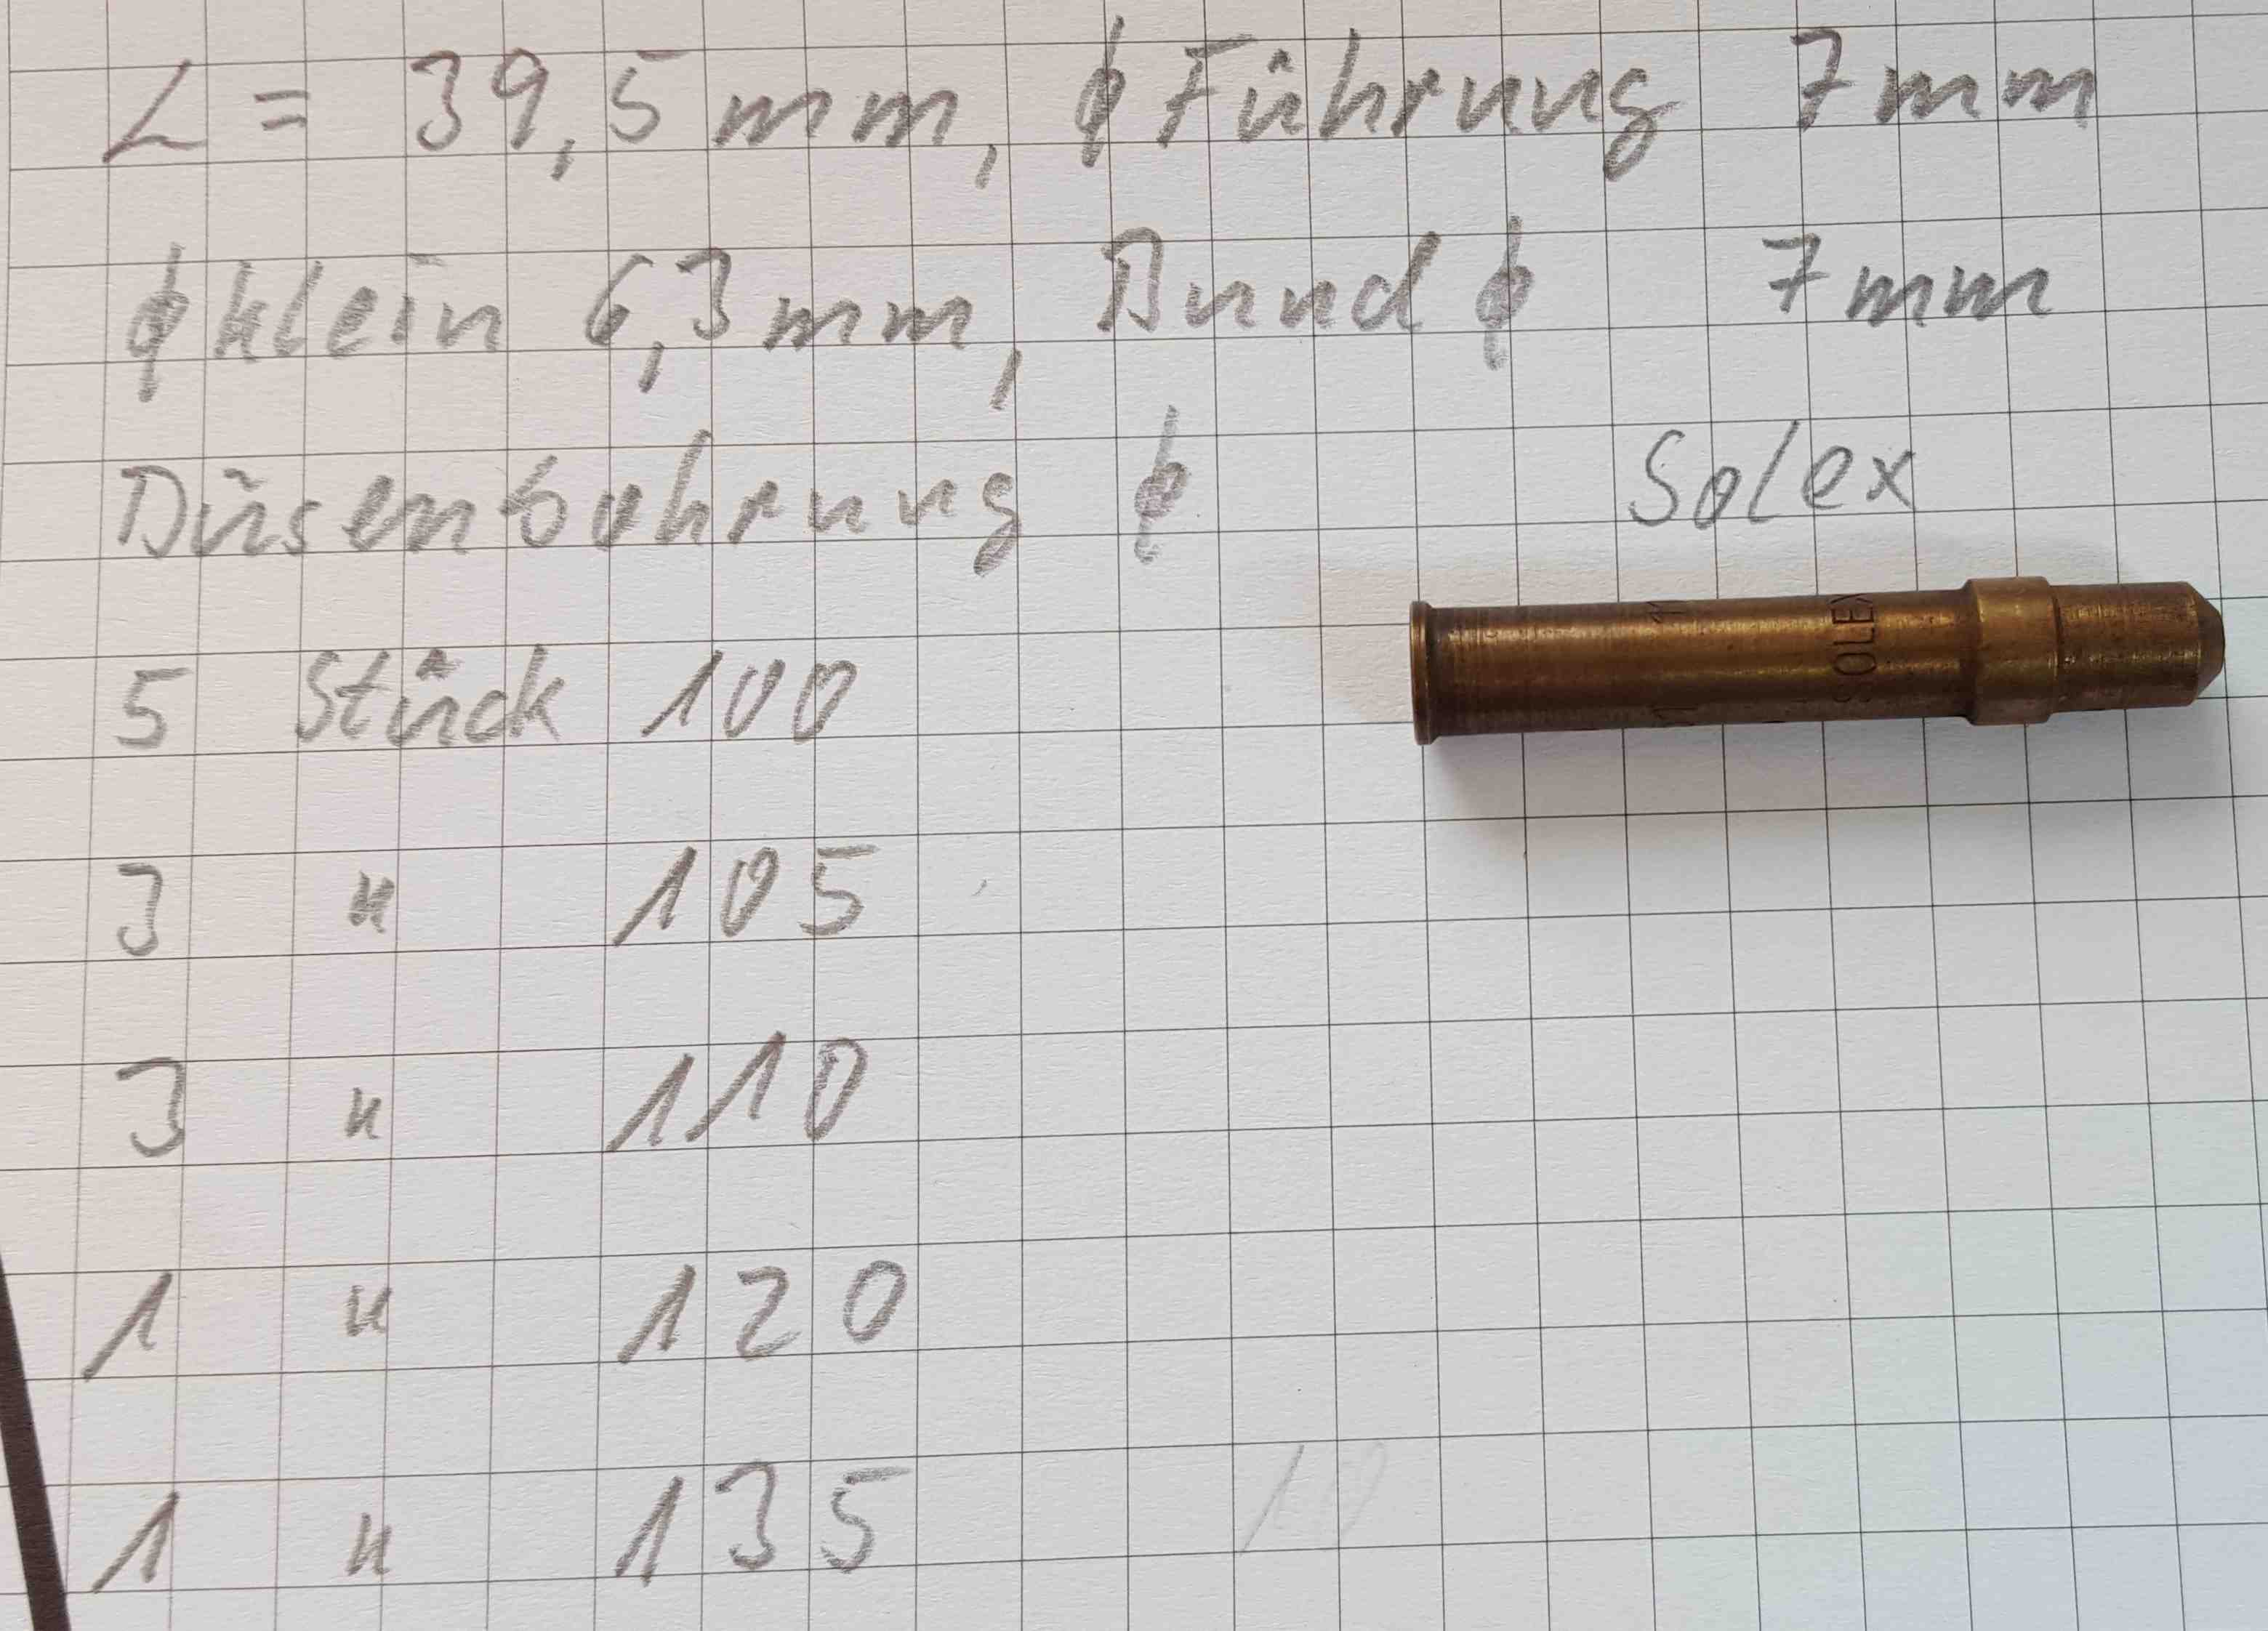 L = 39,5 mm, ϕ Führung 7 mm
ϕ klein 6,3 mm, Bund ϕ 7 mm
Düsenbohrung ϕ Solex
SOLEX
5 Stück 100
3 " 105
3 " 110
1 " 120
1 " 135